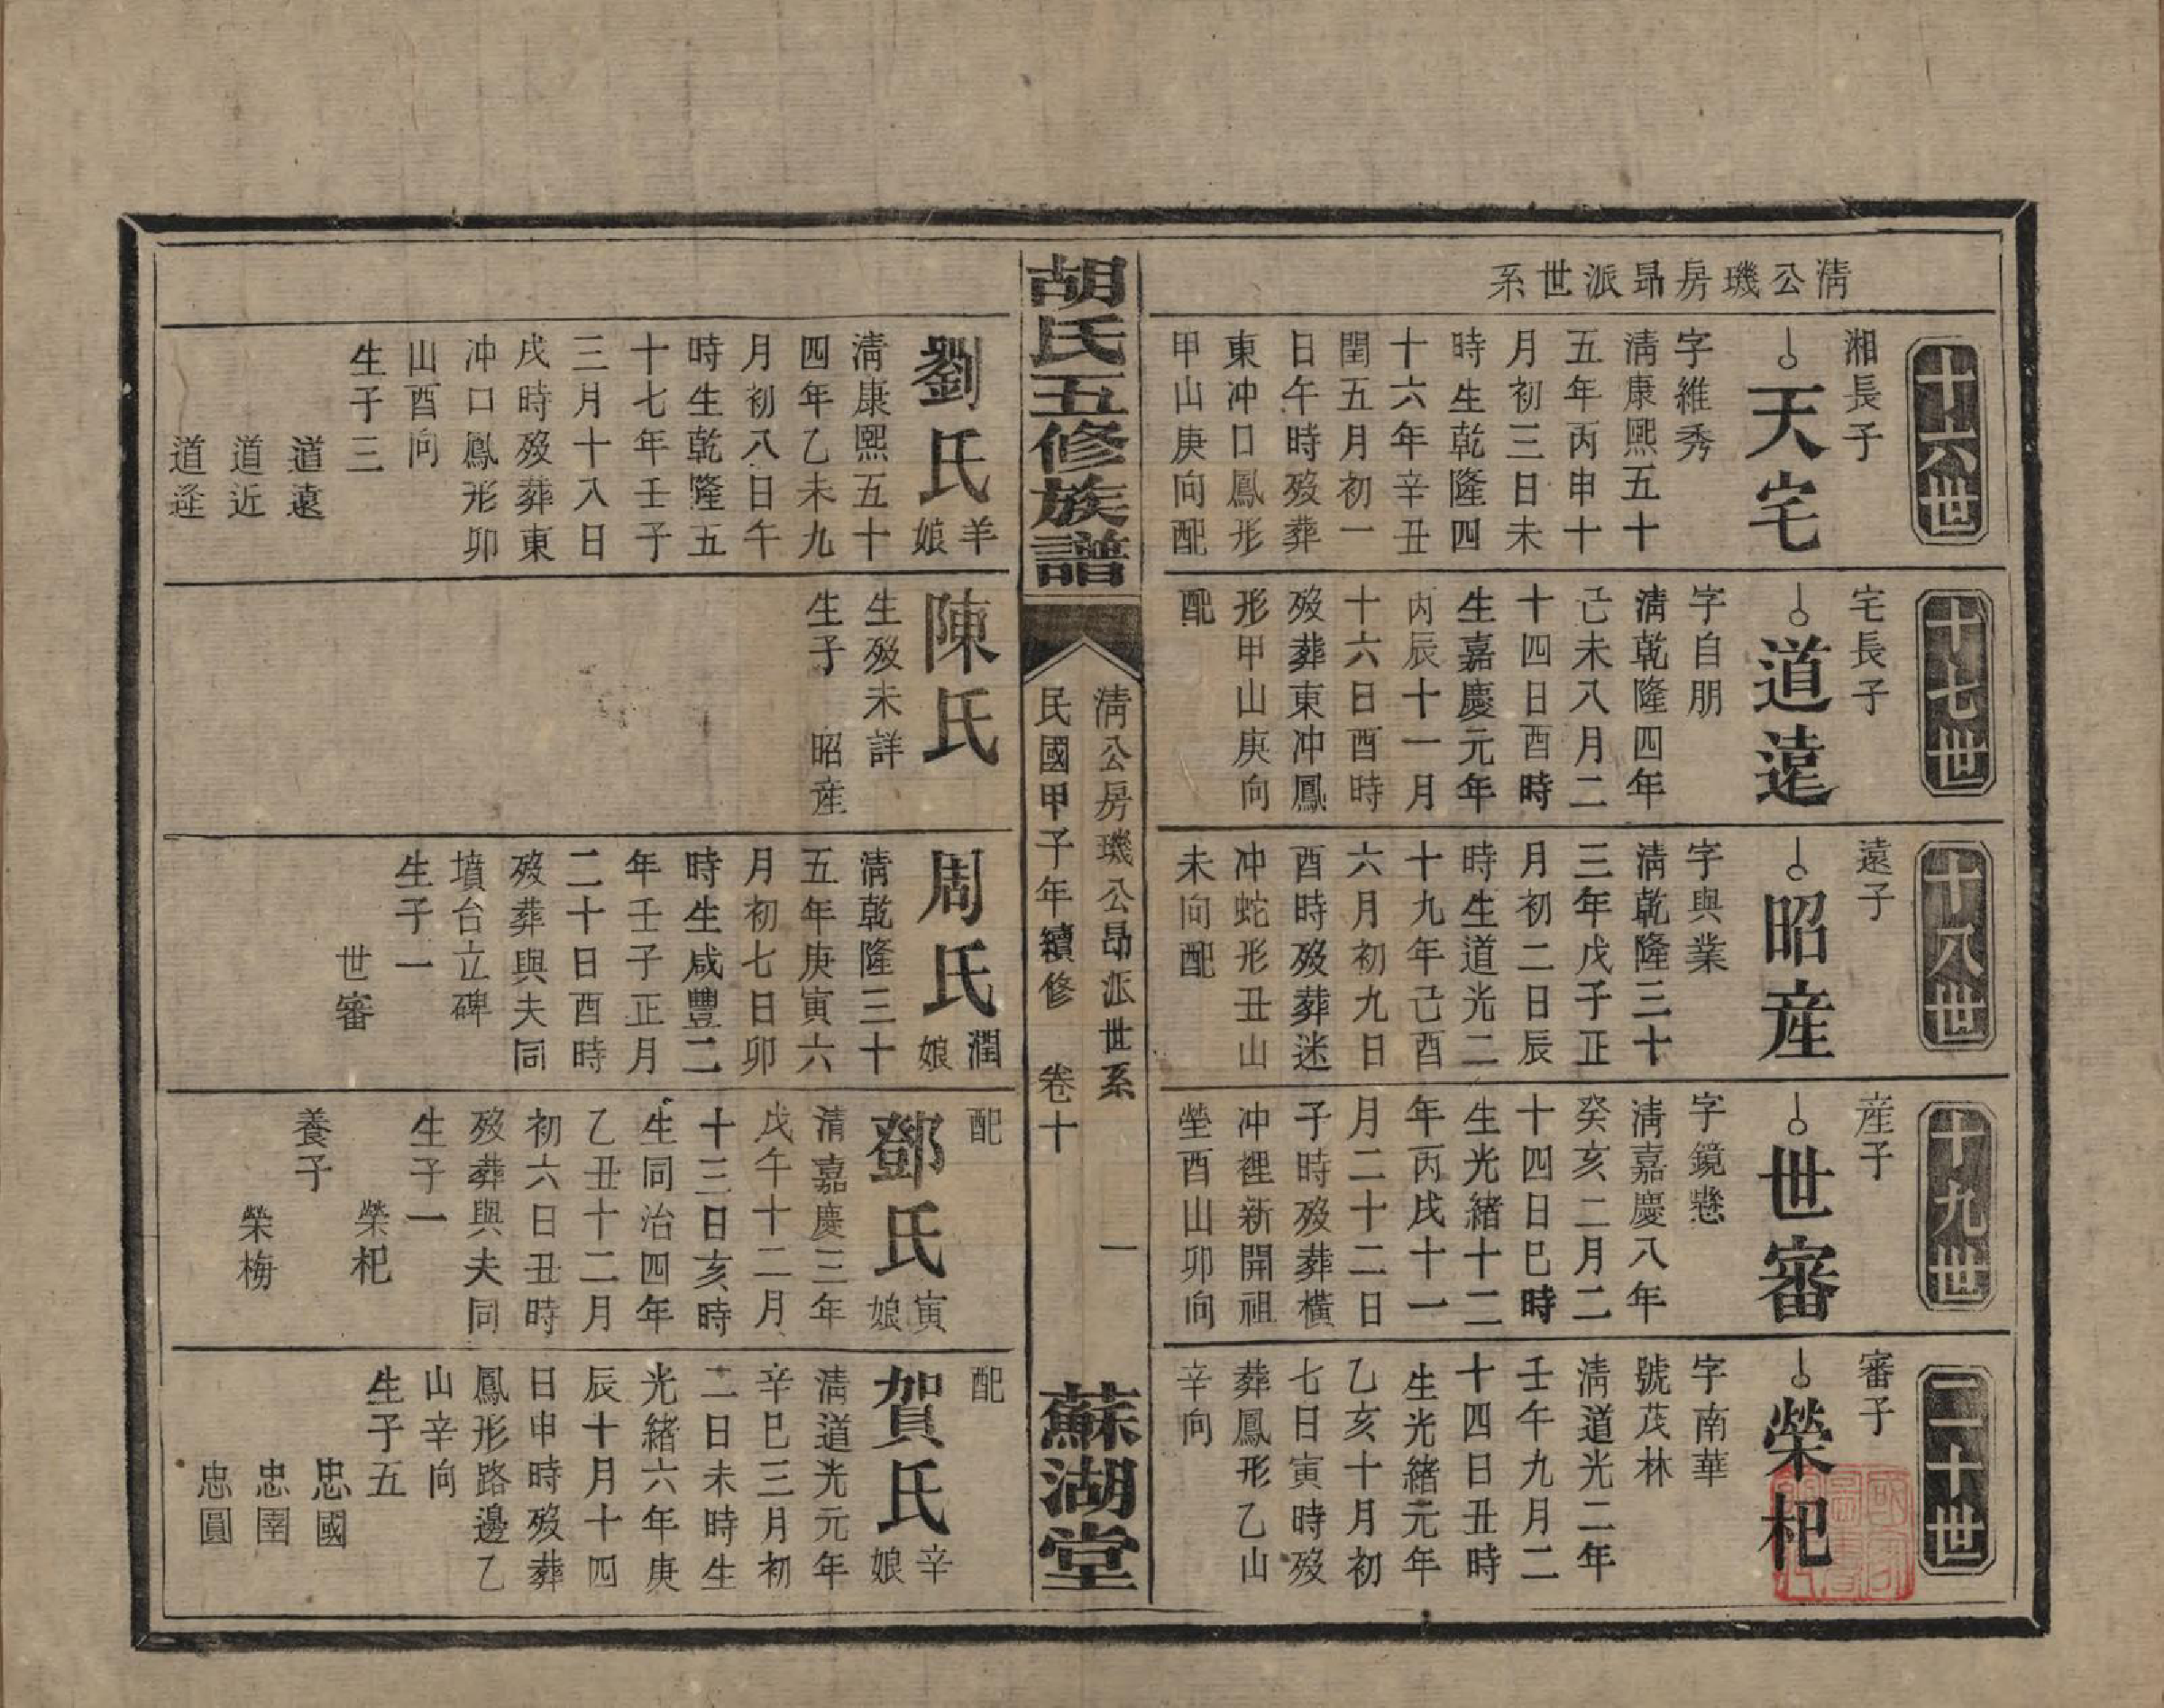 清公璣房昻派世系
十六世
湘長子
天宅
字維秀
清康熙五十
五年丙申十
月初三日未
時生乾隆四
十六年辛丑
閏五月初一
日午時殁葬
東冲口鳳形
甲山庚向配
劉氏羊娘
清康熙五十
四年乙未九
月初八日午
時生乾隆五
十七年壬子
三月十八日
戌時殁葬東
冲口鳳形卯
山酉向
生子三
道遠
道近
道逢
十七世
宅長子
道遠
字自朋
清乾隆四年
己未八月二
十四日酉時
生嘉慶元年
丙辰十一月
十六日酉時
殁葬東冲鳳
形甲山庚向
配
陳氏
生殁未詳
生子 昭産
十八世
遠子
昭産
字與業
清乾隆三十
三年戊子正
月初二日辰
時生道光二
十九年己酉
六月初九日
酉時殁葬迷
冲蛇形丑山
未向配
周氏潤娘
清乾隆三十
五年庚寅六
月初七日卯
時生咸豐二
年壬子正月
二十日酉時
殁葬與夫同
墳台立碑
生子一
世審
十九世
産子
世審
字鏡懸
清嘉慶八年
癸亥二月二
十四日巳時
生光緒十二
年丙戌十一
月二十二日
子時殁葬橫
冲裡新開祖
塋酉山卯向
配
鄧氏寅娘
清嘉慶三年
戊午十二月
十三日亥時
生同治四年
乙丑十二月
初六日丑時
殁葬與夫同
生子一
榮杞
養子
榮梅
二十世
審子
榮杞
字南華
號茂林
清道光二年
壬午九月二
十四日丑時
生光緒元年
乙亥十月初
七日寅時殁
葬鳳形乙山
辛向
配
賀氏辛娘
清道光元年
辛巳三月初
二日未時生
光緒六年庚
辰十月十四
日申時殁葬
鳳形路邊乙
山辛向
生子五
忠國
忠圉
忠圓
胡氏五修族譜
清公房璣公昻派世系 一
民國甲子年續修 卷十
蘇湖堂